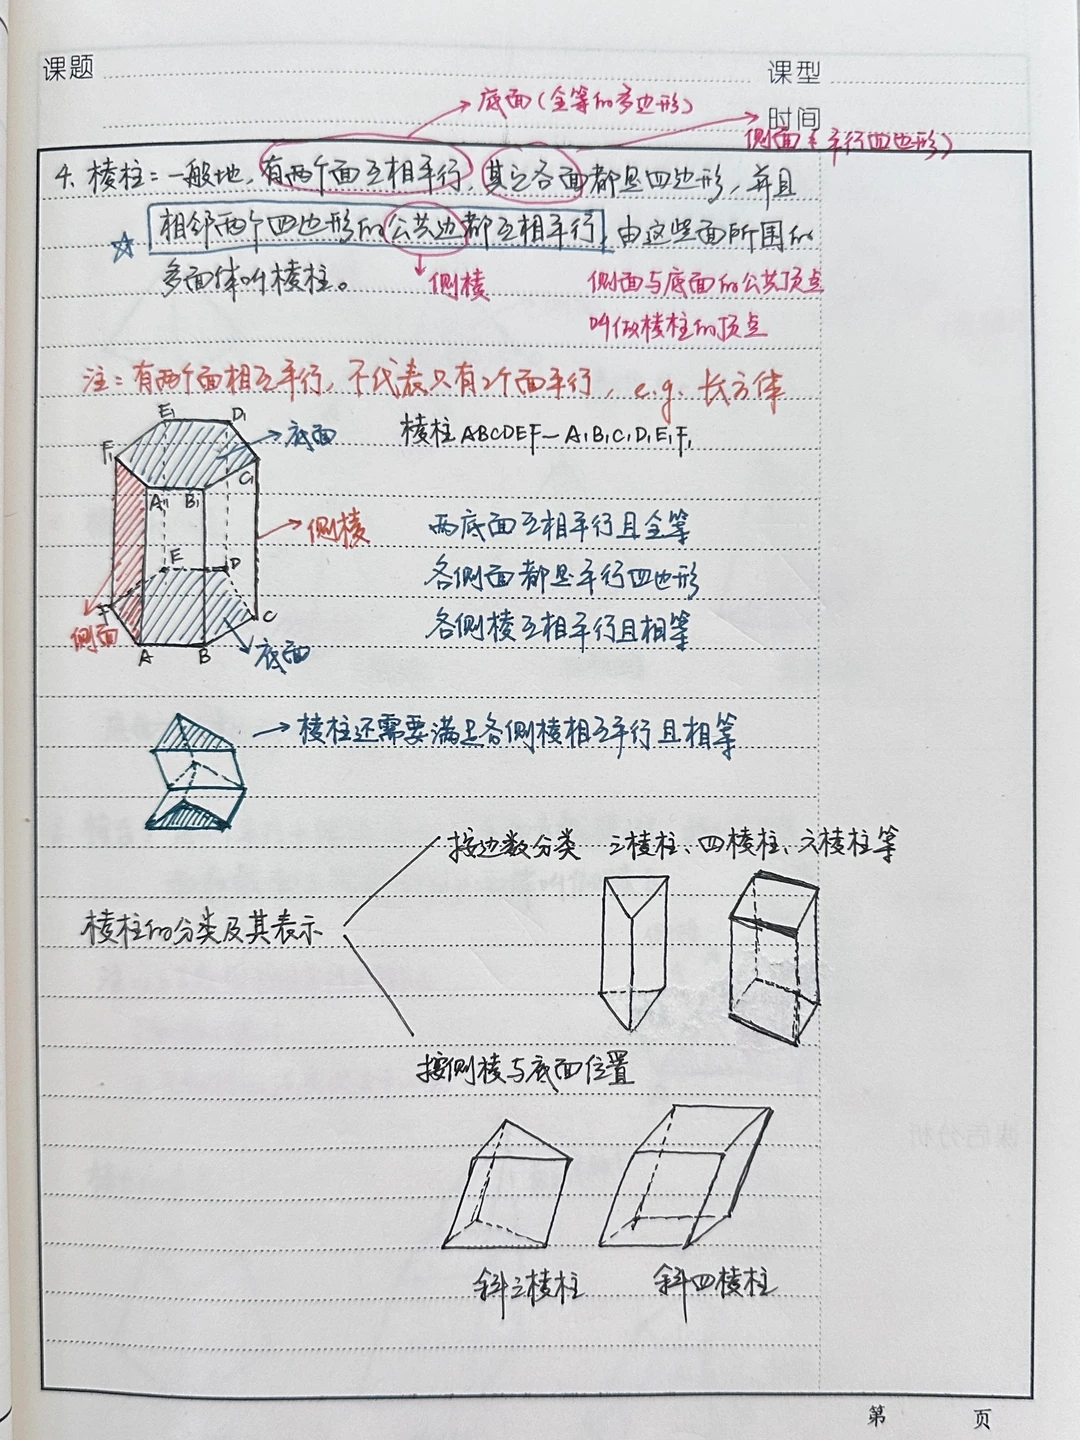 课题
课型
底面(全等的多边形)
时间
侧面(平行四边形)
4、棱柱:一般地,有两个面互相平行,其它各面都是四边形,并且
☆ 相邻两个四边形的公共边都互相平行,由这些面所围的
多面体叫棱柱。
侧棱
侧面与底面的公共顶点
叫做棱柱的顶点
注:有两个面相互平行,不代表只有2个面平行,e.g. 长方体
E₁ D₁
F₁
C₁
A₁ B₁
底面
棱柱ABCDEF—A₁B₁C₁D₁E₁F₁
侧棱
两底面互相平行且全等
E D
各侧面都是平行四边形
F
C
侧面
各侧棱互相平行且相等
A B
底面
棱柱还需要满足各侧棱相互平行且相等
按边数分类 三棱柱、四棱柱、六棱柱等
棱柱的分类及其表示
按侧棱与底面位置
斜三棱柱
斜四棱柱
第 页